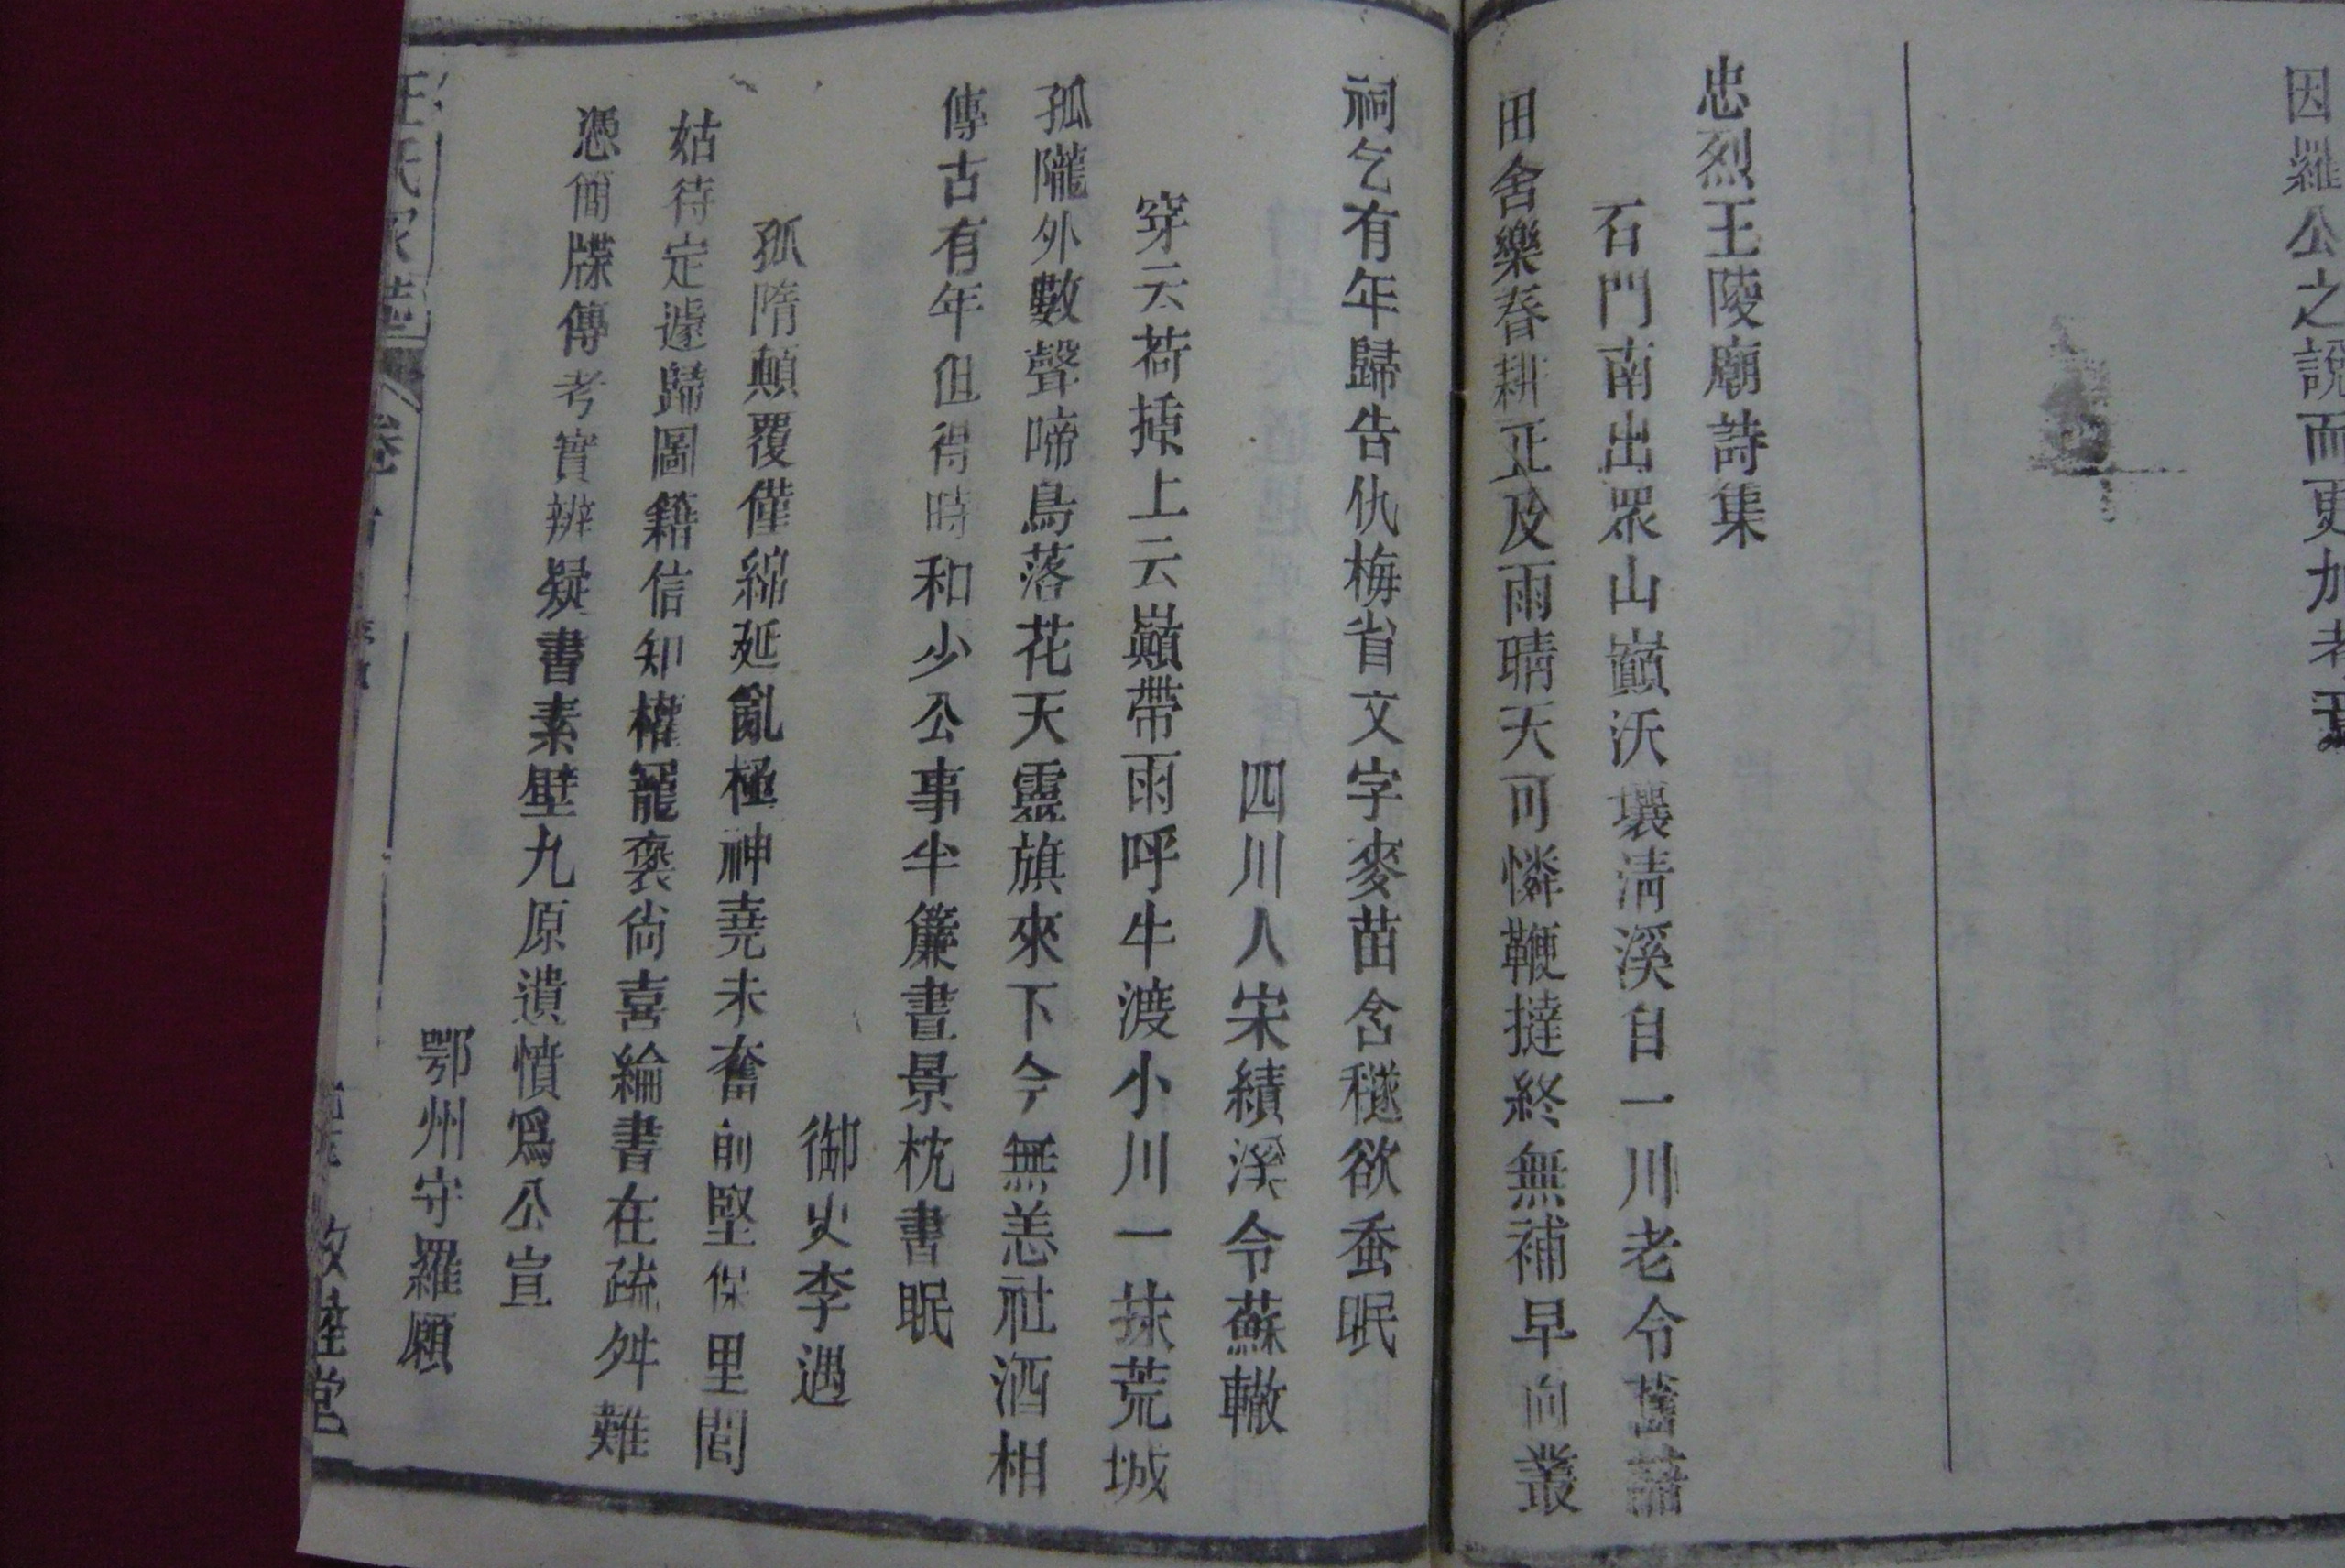 因羅公之說而更加考
忠烈王陵廟詩集
石門南出眾山巔沃壤清溪自一川老令舊諳
田舍樂春耕正及雨晴天可憐鞭撻終無補早向叢
祠乞有年歸告仇梅省文字麥苗含穟欲蚕眠
四川人宋績溪令蘇轍
穿云荷上云巔帶雨呼牛渡小川一抹荒城
孤隴外數聲啼鳥落花天靈旗來下今無恙社酒相
傳古有年但得時和少公事半簾晝景枕書眠
御史李遇
孤隋顛覆僅綿延亂極神堯未奮前堅保里閭
姑待定遽歸圖籍信知權寵褒尚喜綸書在疏舛難
憑簡牒傳考實辨疑書素壁九原遺憤爲公宣
鄂州守羅願
汪氏家 卷